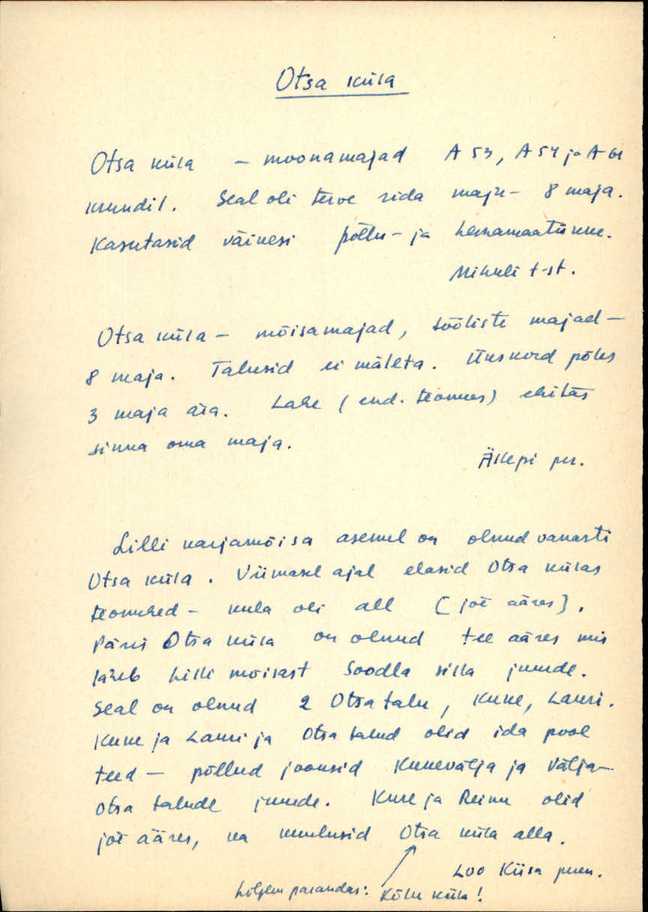 Otsa küla
Otsa küla - moonamajad A 53, A 54 ja A 61
krundil. Seal oli terve rida maju - 8 maja.
Kasutasid väikesi põllu- ja heinamaatükke.
Mihkli t-st.
Otsa küla - mõisamajad, sööliste majad -
8 maja. Talusid ei mäleta. Ükskord põles
3 maja ära. Lahe (end. teomees) ehitas
sinna oma maja.
per.
Lilli karjamõisa asemel on olnud vanasti
Otsa küla. Viimasel ajal elasid Otsa külas
teomehed - küla oli all (jõe ääres).
Päris Otsa küla on olnud tee ääres mis
läheb Lilli mõisast Soodla silla juurde.
Seal on olnud 2 Otsa talu, Kure, Lauri.
Kure ja Lauri ja Otsa talud olid ida pool
teed - põllud jooksid Kurevälja ja Välja-
otsa talude juurde. Kure ja Reinu olid
jõe ääres, ka kuulusid Otsa küla alla.
Loo Kiisa pern.
parandas: Kõlu küla!